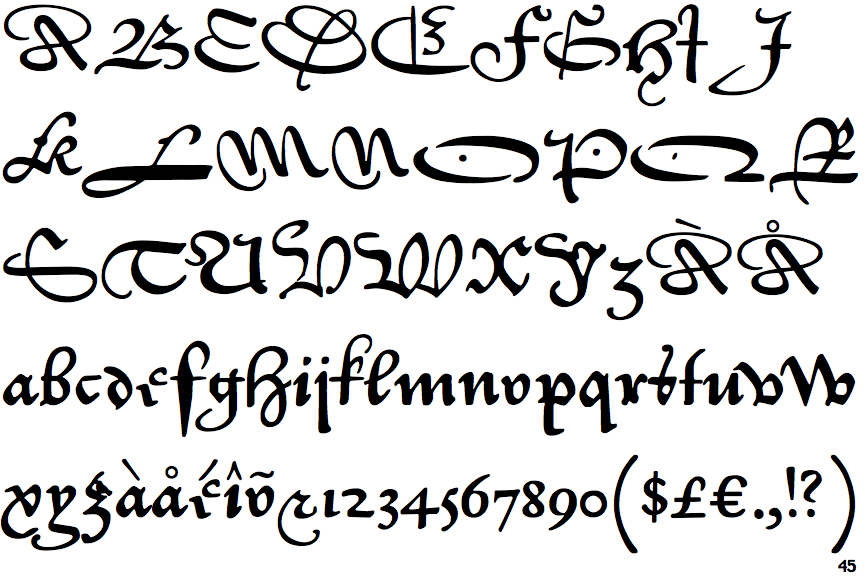 ABCDEFGHIJ
KLMNOPQR
STUVWXYZÀÅ
abcdefghijklmnopqrstuvw
xyzàåéîõ&1234567890($£€.,!?)
45